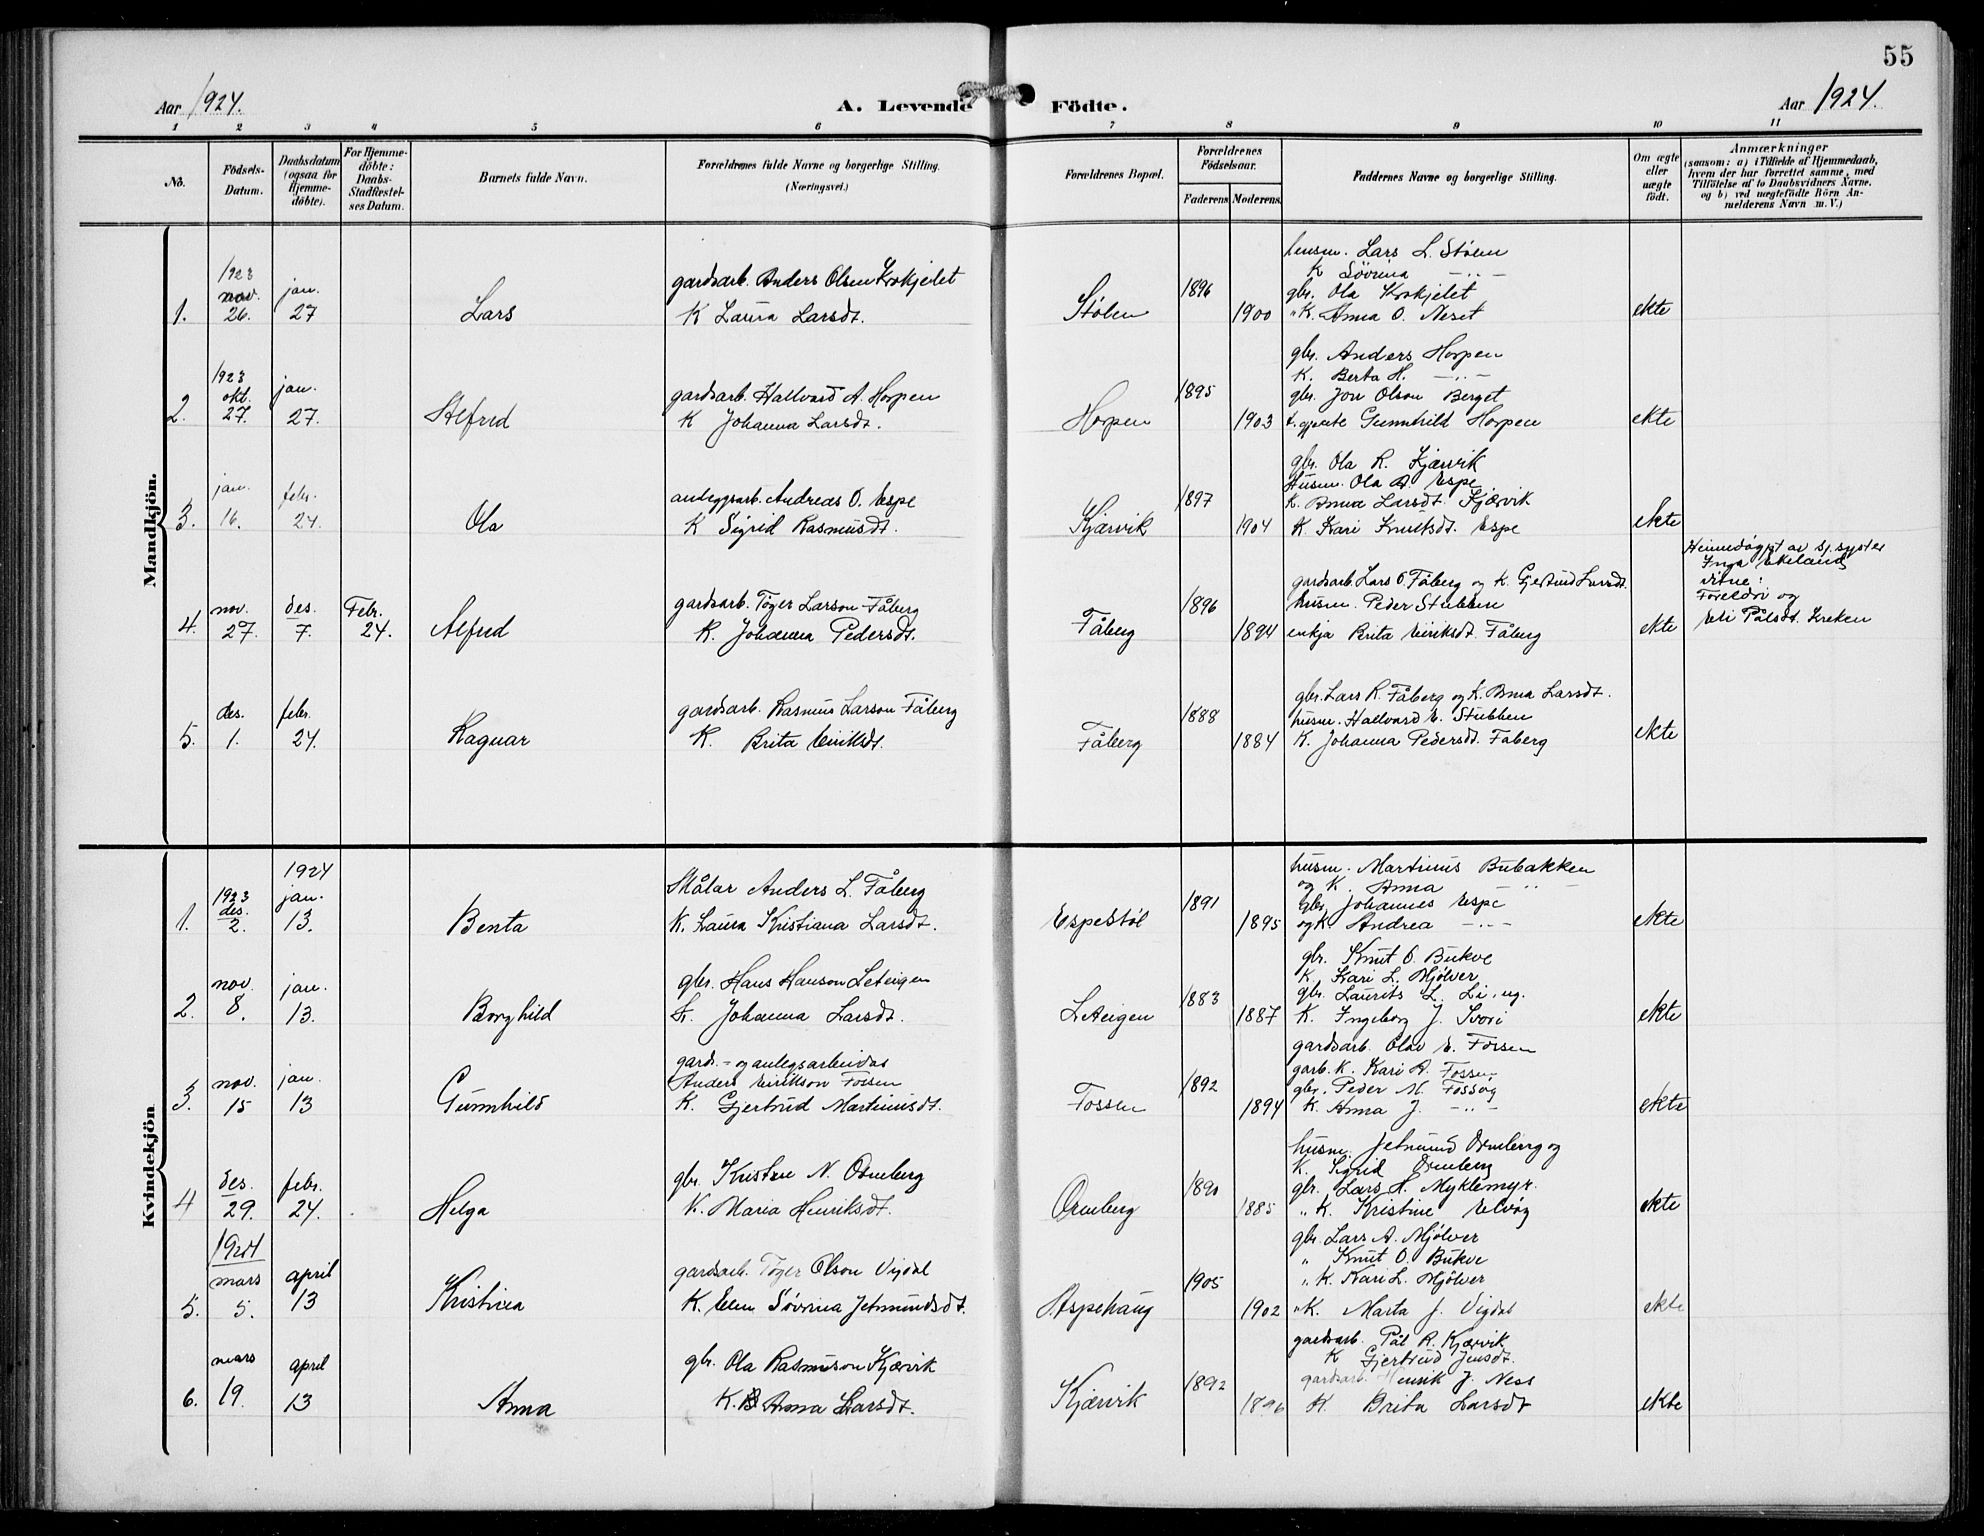 55
Aar 1924.
A. Levende Födte.
Aar 1924.
1 2 3 4 5 6 7 8 9 10 11
No.
Födsels-
Datum.
Daabsdatum
(ogsaa for
Hjemme-
döbte).
For Hjemme-
döbte:
Daabs-
Stadfæstel-
ses Datum.
Barnets fulde Navn.
Forældrenes fulde Navne og borgerlige Stilling.
(Næringsvei.)
Forældrenes Bopæl.
Forældrenes
Födselsaar.
Faderens.
Moderens.
Faddernes Navne og borgerlige Stilling.
Om ægte
eller
uægte
født.
Anmærkninger
(saasom: a) i Tilfælde af Hjemmedaab,
hvem der har forrettet samme, med
Tilföielse af to Daabsvidners Navne.
og b) ved uægtefödte Börn An-
melderens Navn m. V.)
Mandkjön.
1.
1923
nov.
26.
jan.
27
Lars
gardsarb. Anders Olsen Krokjelet
K Laura Larsdt.
Stölen
1896
1900
husm. Lars L. Stölen
K Sövrina -"-
gbr. Ola Krokjelet
"K. Anna O. Neset
ekte
2.
1923
okt.
27.
jan.
27.
Alfred
gardsarb. Hallvard A. Horpen
K Johanna Larsdt.
Horpen
1895
1903
gbr. Anders Horpen
K. Berta H. -"-
gbr. Jon Olson Berget
t. gjente Gunnhild Horpen
ekte
3.
jan.
16.
febr.
24.
Ola
anleggsarb. Andreas O. Espe
K Sigrid Rasmusdt.
Kjærvik
1897
1904
gbr. Ola R. Kjærvik
Husm. Ola A. Espe
K. Anna Larsdt. Kjærvik
K. Kari Knutsdt. Espe
ekte
4.
nov.
27.
des.
7.
Febr.
24.
Alfred
gardsarb. Töger Larson Fåberg
K. Johanna Pedersdt.
Fåberg
1896
1894
gardsarb. Lars O. Fåberg og K. Gjertrud Larsdt.
husm. Peder Stubben
enkja Brita Eiriksdt. Fåberg
ekte
Heimedöypt av sj.syster
Inga Ekeland
vitne:
Foreldri og
Eli Pålsdt. Kreken
5.
des.
1.
febr.
24.
Ragnar
gardsarb. Rasmus Larson Fåberg
K. Brita Eiriksdt.
Fåberg
1888
1884
gbr. Lars R. Fåberg og K. Anna Larsdt.
husm. Hallvard E. Stubben
K. Johanna Pedersdt. Faberg
ekte
Kvindekjön
1.
1923
des.
2.
1924
jan.
13.
Benta
Målar Anders L. Fåberg
K. Laura Kristiana Larsdt.
Espestöl
1891
1895
husm. Martinus Bubakken
og K. Anna -"-
Gbr. Johannes Espe
og K Andrea -"-
ekte
2.
nov.
8.
jan.
13.
Borghild
gbr. Hans Hanson Leteigen
K. Johanna Larsdt.
Leteigen
1883
1887
gbr. Knut O. Bukve
K. Kari L. Mjölver
gbr. Laurits L. Li, ug.
K. Ingeborg J.
ekte
3.
nov.
15
jan.
13
Gunnhild
gards- og anlegsarbeidar
Anders Eirikson Fossen
K. Gjertrud Martinusdt.
Fossen
1892
1894
gardsarb. Olav E. Fossen
garb. K. Kari A. Fossen
gbr. Peder M. Fossöy
K. Anna J. -"-
ekte
4
des.
29.
febr.
24.
Helga
gbr. Kristen N. Ormberg
K. Maria Henriksdt.
Ormberg
1890
1885
husm. Jetmund Ormberg og
K. Sigrid Ormberg
gbr. Lars H. Myklemyr.
" K. Kristine Elvöy
ekte
5.
1924
mars
5.
april
13
Kristina
gardsarb. Töger Olson Vigdal
K. Elen Sövrina Jetmundsdt.
Aspehaug
1905
1902
gbr. Lars A. Mjölver
" Knut O. Bukve
" K. Kari L. Mjölver
"K. Marta J. Vigdal
ekte
6.
mars
19.
april
13
Anna
gbr. Ola Rasmuson Kjærvik
K. Anna Larsdt.
Kjærvik
1892
1896
gardsarb. Pål R. Kjærvik
K Gjertrud Jensdt.
gardsarb. Henrik J. Ness
K Brita Larsdt
ekte